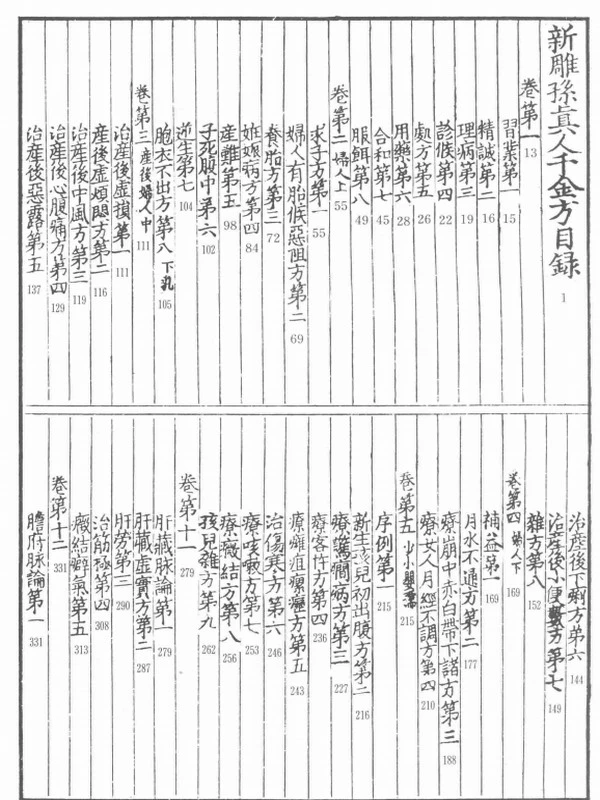 新雕孫真人千金方目錄 1
卷第一 13
習業第一 15
精誠第二 16
理病第三 19
診候第四 22
處方第五 26
用藥第六 28
合和第七 45
服餌第八 49
卷第二 婦人上 55
求子方第一 55
婦人有胎候惡阻方第二 69
養胎方第三 72
妊娠病方第四 84
產難第五 98
子死腹中第六 102
逆生第七 104
胞衣不出方第八 下乳 105
卷第三 產後婦人中 111
治產後虛損第一 111
產後虛煩悶方第二 116
治產後中風方第三 119
治產後心腹痛方第四 129
治產後惡露第五 137
治產後下痢方第六 144
治產後小便數方第七 149
雜方第八 152
卷第四 婦人下 169
補益第一 169
月水不通方第二 177
療崩中赤白帶下諸方第三 188
療女人月經不調方第四 210
卷第五 少小嬰孺 215
序例第一 215
新生孩兒初出腹方第二 216
療驚癇病方第三 227
療客忤方第四 236
療癰疽瘰癧方第五 243
治傷寒方第六 246
療咳嗽方第七 253
療癥結方第八 256
孩兒雜方第九 262
卷第十一 279
肝藏脉論第一 279
肝藏虛實方第二 287
肝勞第三 290
治筋極第四 308
癥結癖氣第五 313
卷第十二 331
膽府脉論第一 331